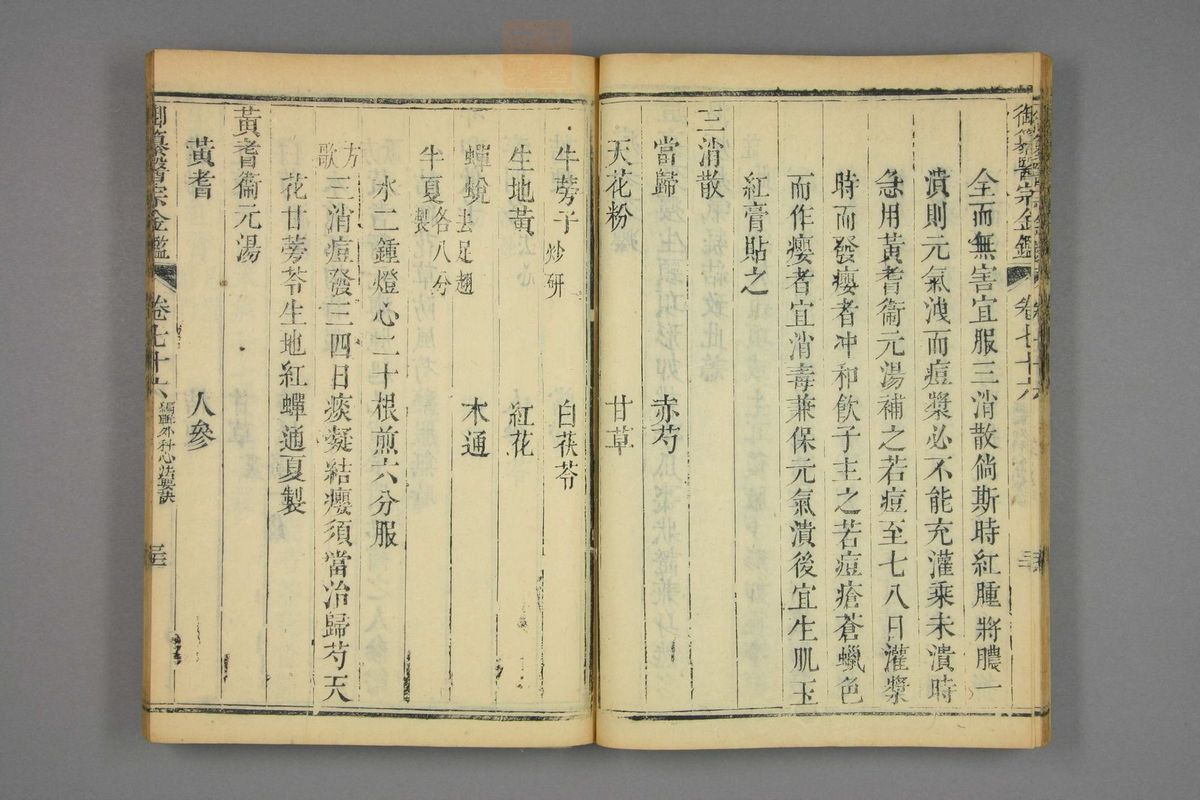 御纂醫宗金鑑 卷七十六
全而無害宜服三消散倘斯時紅腫將膿一
潰則元氣洩而痘漿必不能充灌乘未潰時
急用黃耆衞元湯補之若痘至七八日灌漿
時而發癭者冲和飲子主之若痘瘡蒼蠟色
而作癭者宜消毒兼保元氣潰後宜生肌玉
紅膏貼之
三消散
當歸 赤芍
天花粉 甘草
牛蒡子炒研 白茯苓
生地黃 紅花
蟬蛻去足翅 木通
半夏製各八分
水二鍾燈心二十根煎六分服
方歌 三消痘發三四日痰凝結癭須當治歸芍天
花甘蒡苓生地紅蟬通夏製
黃耆衞元湯
黃耆 人參
御纂醫宗金鑑 卷七十六 編輯外科心法要訣 三三